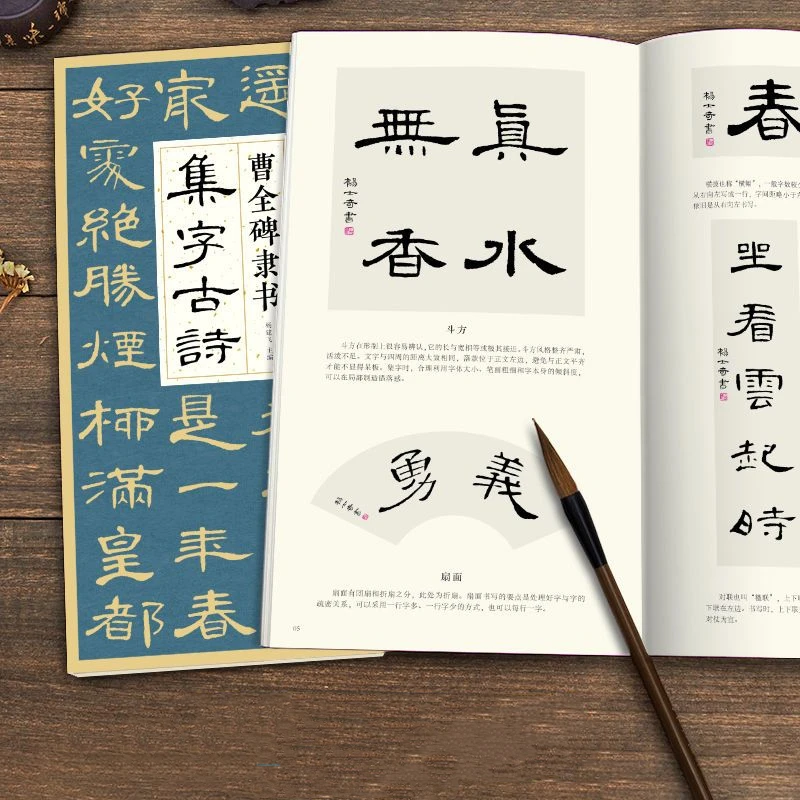 遥
家
是一年春
好處絶勝煙柳滿皇都
曹全碑隶书
集字古詩
主编
眞水
無香
楊士奇書
斗方
斗方在形制上很容易辨认,它的长与宽相等或极其接近。斗方风格整齐严肃,
活泼不足。文字与四周的距离大致相同,落款位于正文左边,避免与正文平齐
才能不显得呆板。集字时,合理利用字体大小、笔画粗细和字本身的倾斜度,
可以在局部制造错落感。
義勇
楊士奇書
扇面
扇面有团扇和折扇之分,此处为折扇。扇面书写的要点是处理好字与字的
疏密关系,可以采用一行字多、一行字少的方式,也可以每行一字。
05
春
楊士奇書
横披也称“横幅”,一般字数较
从右向左写成一行,字间距略小于
依旧是从右向左书写。
坐看雲起時
楊士奇書
对联也叫“楹联”,上下
下联在左边。书写时,上下
对仗为宜。